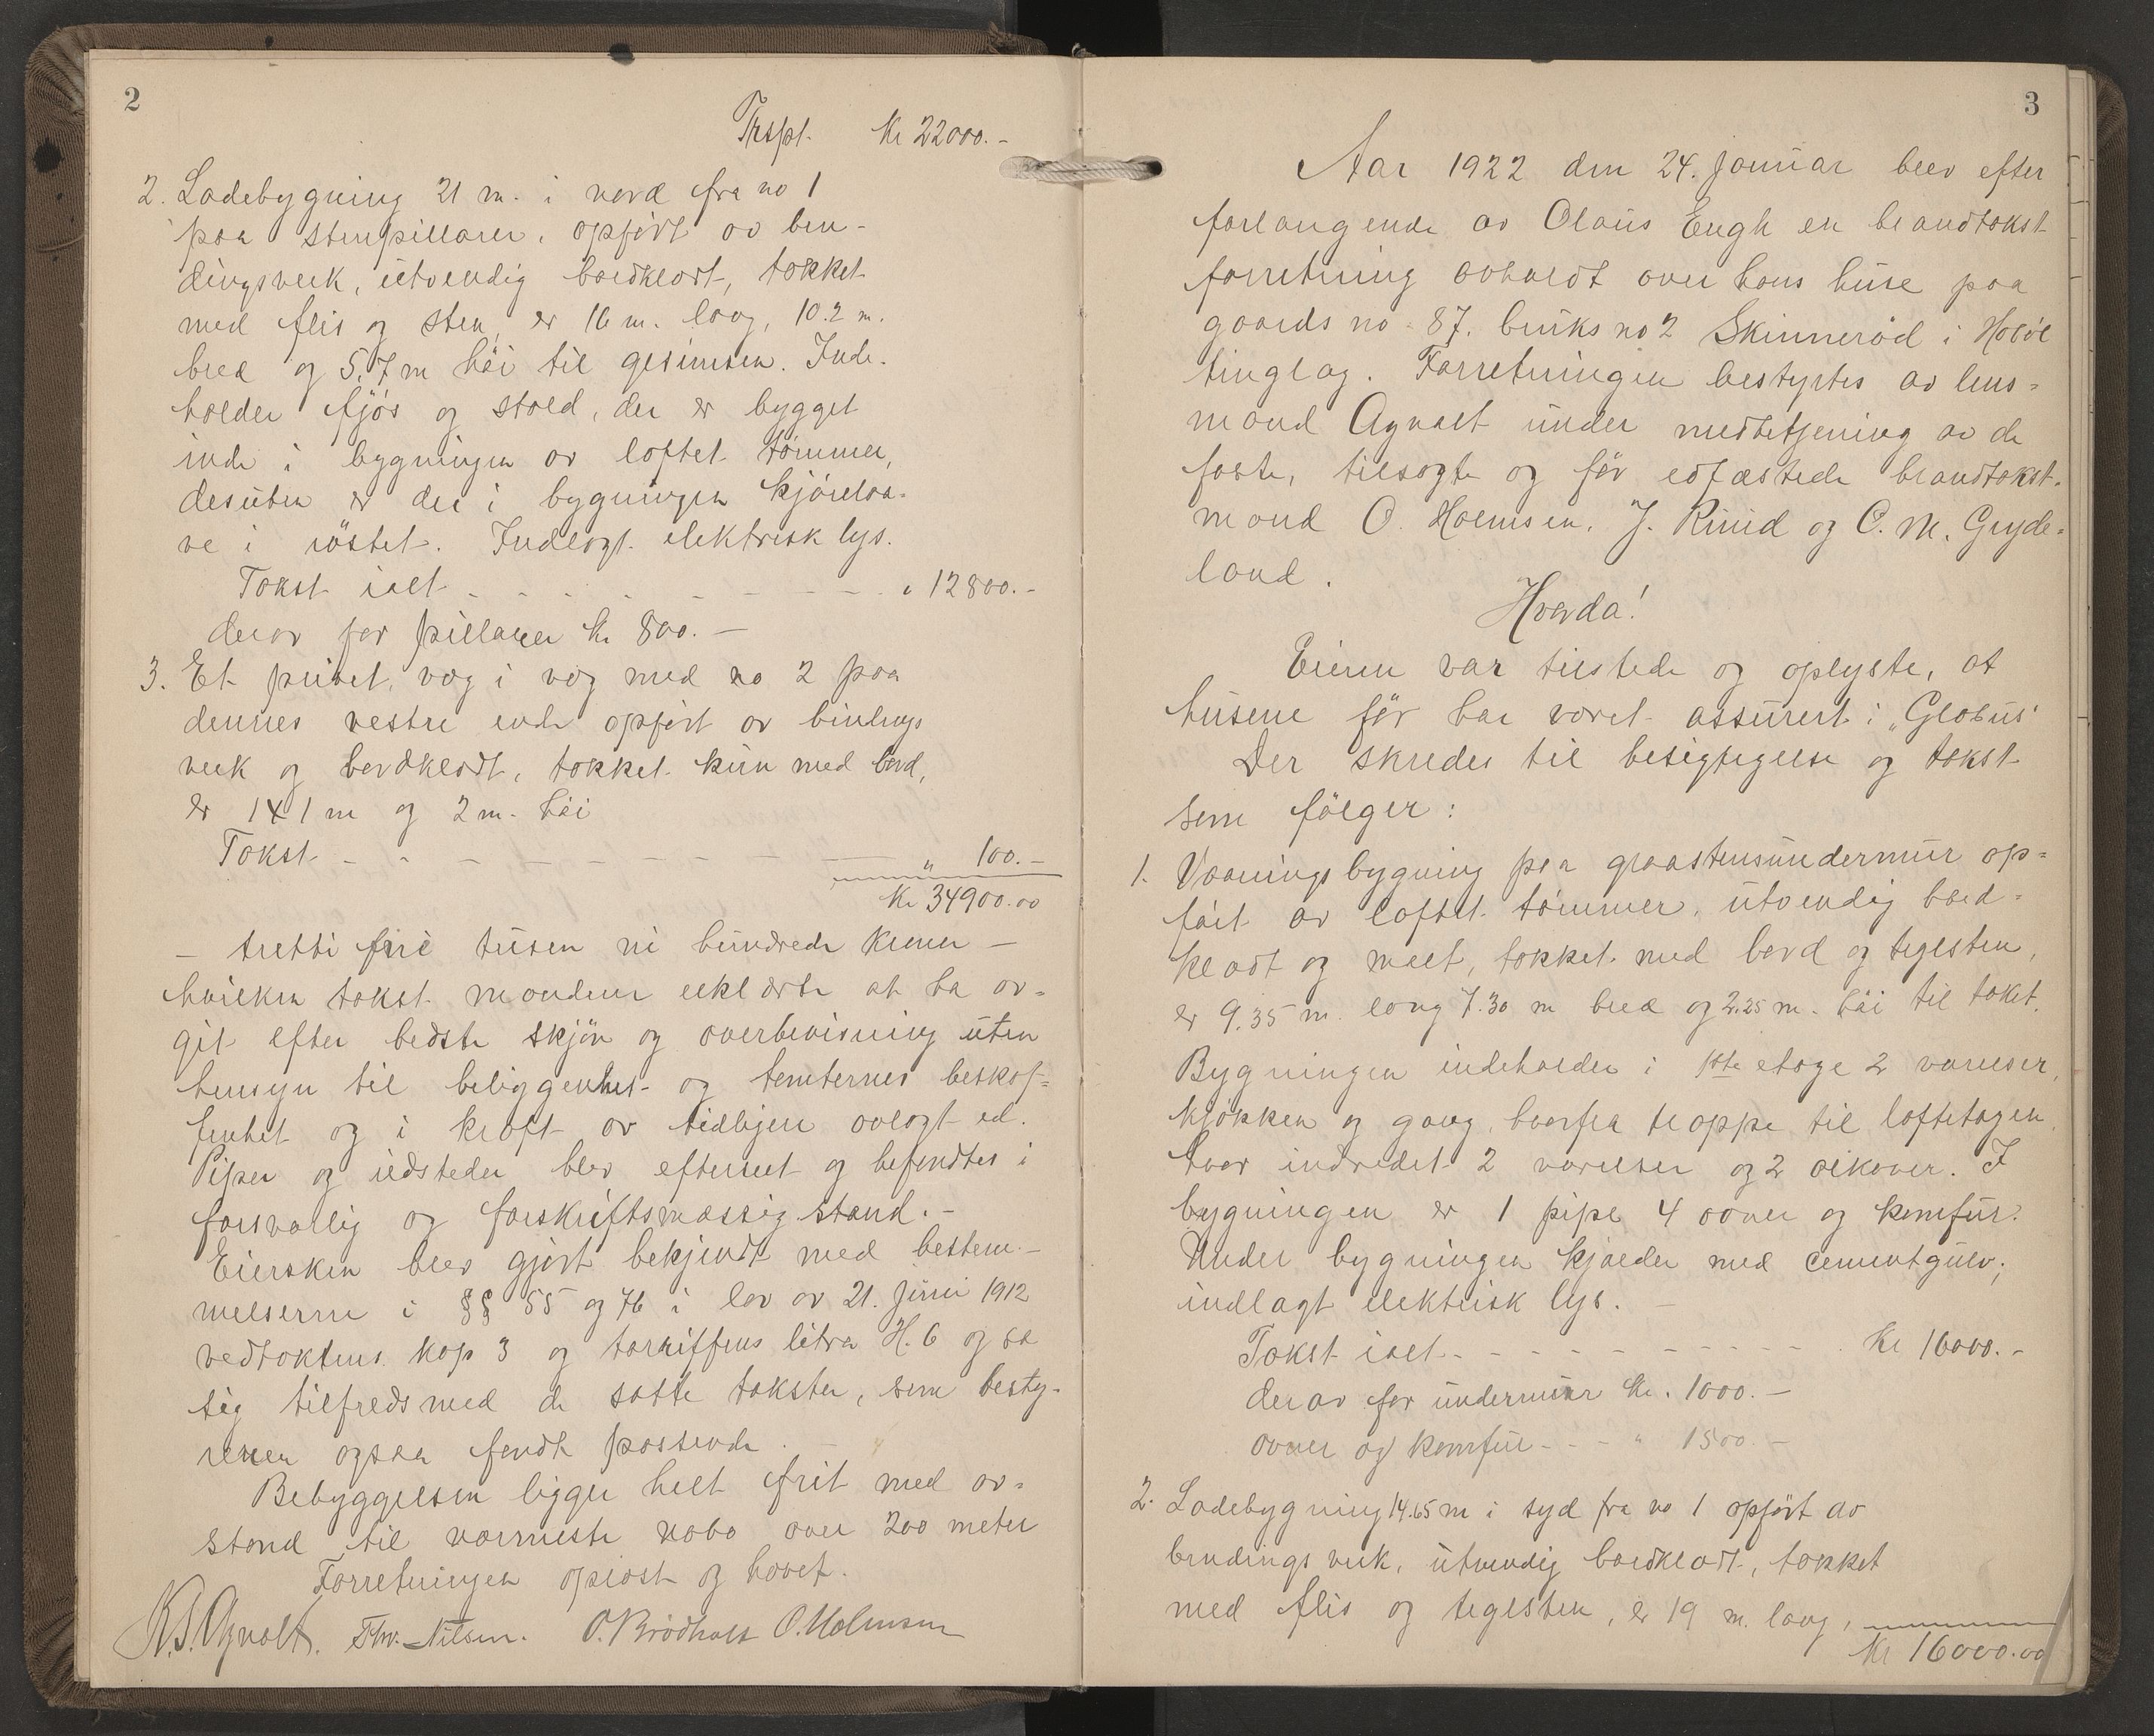 2
Trspt. Kr 22000.-
2. Ladebygning 21 m. i nord fra no 1
paa stenpillarer, opført av bin-
dingsverk, utvendig bordklædt, tækket
med flis og sten, er 16 m. lang, 10.2 m.
bred og 5.7 m høi til gesimsen. Inde-
holder fjøs og stald, der er bygget
inde i bygningen av laftet tømmer,
desuten er der i bygningen kjørelaa-
ve i røstet. Indlagt elektrisk lys.
Takst ialt - - - - - - - - " 12800.-
derav for pillarer kr 800.-
3. Et privet, væg i væg med no 2 paa
dennes vestre ende opført av bindings
verk og bordklædt, tækket kun med bord,
er 1 x 1 m og 2 m. høi
Takst - - - - - - - - - " 100.-
Kr 34900.00
- tretti fire tusen ni hundrede kroner -
hvilken takst mændene erklærte at ha av-
git efter bedste skjøn og overbevisning uten
hensyn til beliggenhet og tomternes beskaf-
fenhet og i kraft av tidligere avlagt ed.
Piper og ildsteder blev efterset og befandtes i
forsvarlig og forskriftsmæssig stand.-
Eiersken blev gjort bekjendt med bestem-
melserne i §§ 55 og 76 i lov av 21. juni 1912
vedtæktens kap 3 og tariffens litra H. 6 og sa
sig tilfreds med de satte takster, som besty-
reren ogsaa fandt passende.
Bebyggelsen ligger helt frit med av-
stand til nærmeste nabo over 200 meter
Forretningen oplæst og hævet.
K.S. Agnalt. Thv. Nilsen. O. Brødholt O. Holmsen
3
Aar 1922 den 24. januar blev efter
forlangende av Olaus Engh en brandtakst
forretning avholdt over hans huse paa
gaards no 87. bruks no 2 Skinnerød i Hobøl
tinglag. Forretningen bestyrtes av lens-
mand Agnalt under medbetjening av de
faste, tilsagte og før edfæstede brandtakst-
mænd O. Holmsen, J. Ruud og C. M. Gryde-
land.
Hvorda!
Eieren var tilstede og oplyste, at
husene før har været assurert i "Globus"
Der skredes til besigtigelse og takst
som følger:
1. Vaaningsbygning paa graastensundermur op-
ført av laftet tømmer, utvendig bord-
klædt og malt, tækket med bord og teglsten,
er 9.35 m. lang 7.30 m bred og 2.25 m. høi til taket.
Bygningen indeholder i 1ste etage 2 værelser,
kjøkken og gang, hvorfra trappe til loftetagen,
hvor indredet 2 værelser og 2 alkover. I
bygningen er 1 pipe 4 ovner og komfur.
Under bygningen kjælder med cementgulv;
indlagt elektrisk lys. -
Takst ialt - - - - - - - - - - Kr 16000.-
derav for undermur kr. 1000.-
ovner og komfur - - - " 1500.-
2. Ladebygning 14.65 m i syd fra no 1 opført av
bindingsverk, utvendig bordklædt, tækket
med flis og teglsten, er 19 m. lang,
Kr 16000.00